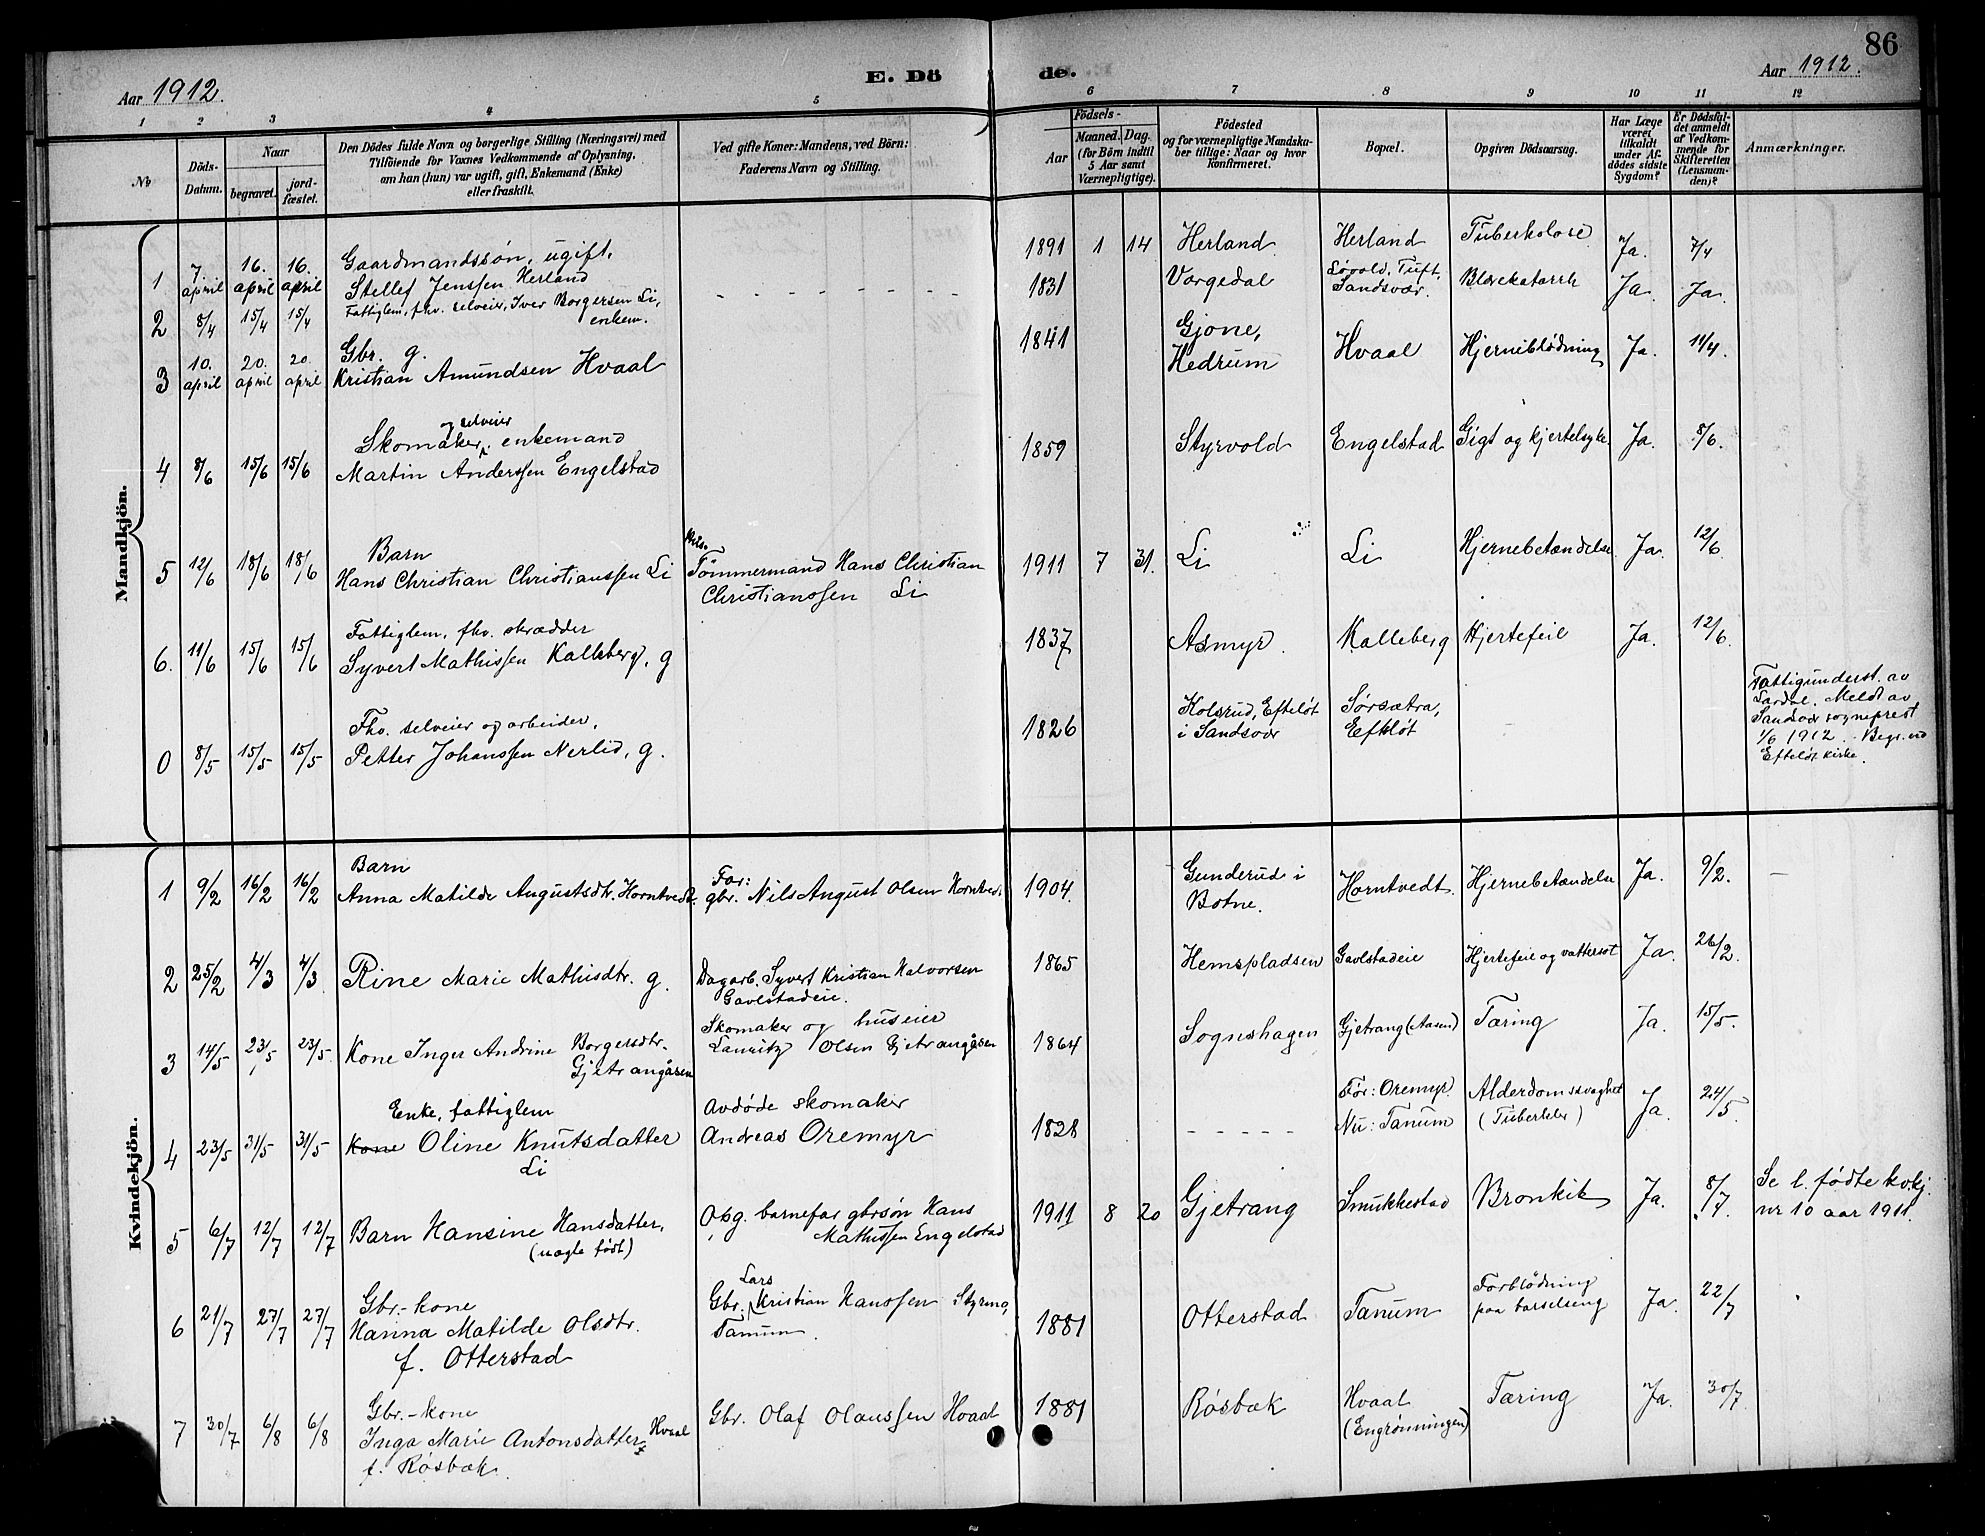 86
E. Dö de.
Aar 1912.
Aar 1912.
1 2 3 4 5 6 7 8 9 10 11 12
No
Döds-Datum.
Naar
begravet.
jord-fæstet.
Den Dödes fulde Navn og borgerlige Stilling (Næringsvei) med
Tilföiende for Voxnes Vedkommende af Oplysning,
om han (hun) var ugift, gift, Enkemand (Enke)
eller fraskilt.
Ved gifte Koner: Mandens, ved Börn:
Faderens Navn og Stilling.
Födsels-
Aar
Maaned. Dag.
(for Börn indtil
5 Aar samt
Værnepligtige).
Födested
og for værnepligtige Mandska-
ber tillige: Naar og hvor
konfirmeret.
Bopæl.
Opgiven Dödsaarsag.
Har Læge
været
tilkaldt
under Af-
dödes sidste
Sygdom?
Er Dödsfal-
det anmeldt
af Vedkom-
mende for
Skifteretten
(Lensman-
den)?
Anmærkninger.
Mandkjön.
Gaardmandssøn, ugift,
1 7 april 16. april 16. april Stellef Jenssen Herland 1891 1 14 Herland Herland Tuberkolose Ja. 7/4
Fattiglem, fhv. selveier, Iver Borgersen Li,
2 8/4 15/4 15/4 enkem. - - - - - - - 1831 Vorgedal Løvold, Tuft, Sandsvær. Blærekatarrh Ja. Ja.
Gbr. g.
3 10. april 20. april 20. april Kristian Amundsen Hvaal 1841 Gjone, Hedrum Hvaal Hjerneblødning Ja. 11/4.
og selveier
Skomaker, enkemand
4 8/6 15/6 15/6 Martin Anderssen Engelstad 1859 Styrvold Engelstad Gigt og kjertelsyke Ja. 8/6.
Barn
5 12/6 18/6 18/6 Hans Christian Christianssen Li Tømmermand Hans Christian 1911 7 31. Li Li Hjernebetændelse Ja. 12/6
Christianssen Li
Fattiglem, fhv. skrædder
6. 11/6 15/6 15/6 Syvert Mathissen Kalleberg, g 1837 Asmyr. Kalleberg Hjertefeil Ja. 12/6.
Fhv. selveier og arbeider,
0 8/5 15/5 15/5 Petter Johanssen Nerlid, g. 1826 Kolsrud, Efteløt i Sandsvær Sørsætra, Efteløt
Fattigunderst. av
Lardal. Meldt av
Sandsvær sogneprest
1/6 1912. Begr. ved
Efteløt kirke.
Kvindekjön.
Barn
1 9/2 16/2 16/2 Anna Matilde Augustsdtr. Horntvedt. Far: gbr. Nils August Olsen Horntvedt 1904. Gunderud i Botne. Horntvedt. Hjernebetændelse Ja. 9/2. —
2 25/2 4/3 4/3 Rine Marie Mathisdtr. g. Dagarb. Syvert Kristian Halvorsen Gavlstadeie. 1865 Hemspladsen Gavlstadeie Hjertefeil og vattersot Ja. 26/2.
Skomaker og huseier
3 14/5 23/5 23/5 Kone Inger Andrine Borgersdtr. Gjetrangåsen Lauritz Olsen Gjetrangåsen 1864 Sognshagen Gjetrang (Aasen) Tæring Ja. 15/5.
Enke, fattiglem Avdøde skomaker
4 23/5 31/5 31/5 Kone Oline Knutsdatter Andreas Oremyr 1828 - - - - - Før: Oremyr. Nu: Tanum Alderdomssvaghet (Tuberkler) Ja. 24/5
Li
5 6/7 12/7 12/7 Barn Hansine Hansdatter, (uægte født) Opg. barnefar gbrsøn Hans Mathissen Engelstad 1911 8 20 Gjetrang Smukkestad Bronkit Ja. 8/7. Se l. fødte kvkj. nr 10 aar 1911.
Gbr.-kone
6 21/7 27/7 27/7 Hanna Matilde Olsdtr. Gbr. Lars Kristian Hanssen Styrmo, Tanum. 1881 Otterstad Tanum Forblødning paa barselseng Ja. 22/7
f. Otterstad
Gbr.-kone
7 30/7 6/8 6/8 Inga Marie Antonsdatter Hvaal Gbr. Olaf Olaussen Hvaal 1881 Røsbæk Hvaal (Engrønningen) Tæring Ja. 30/7.
f. Røsbæk.